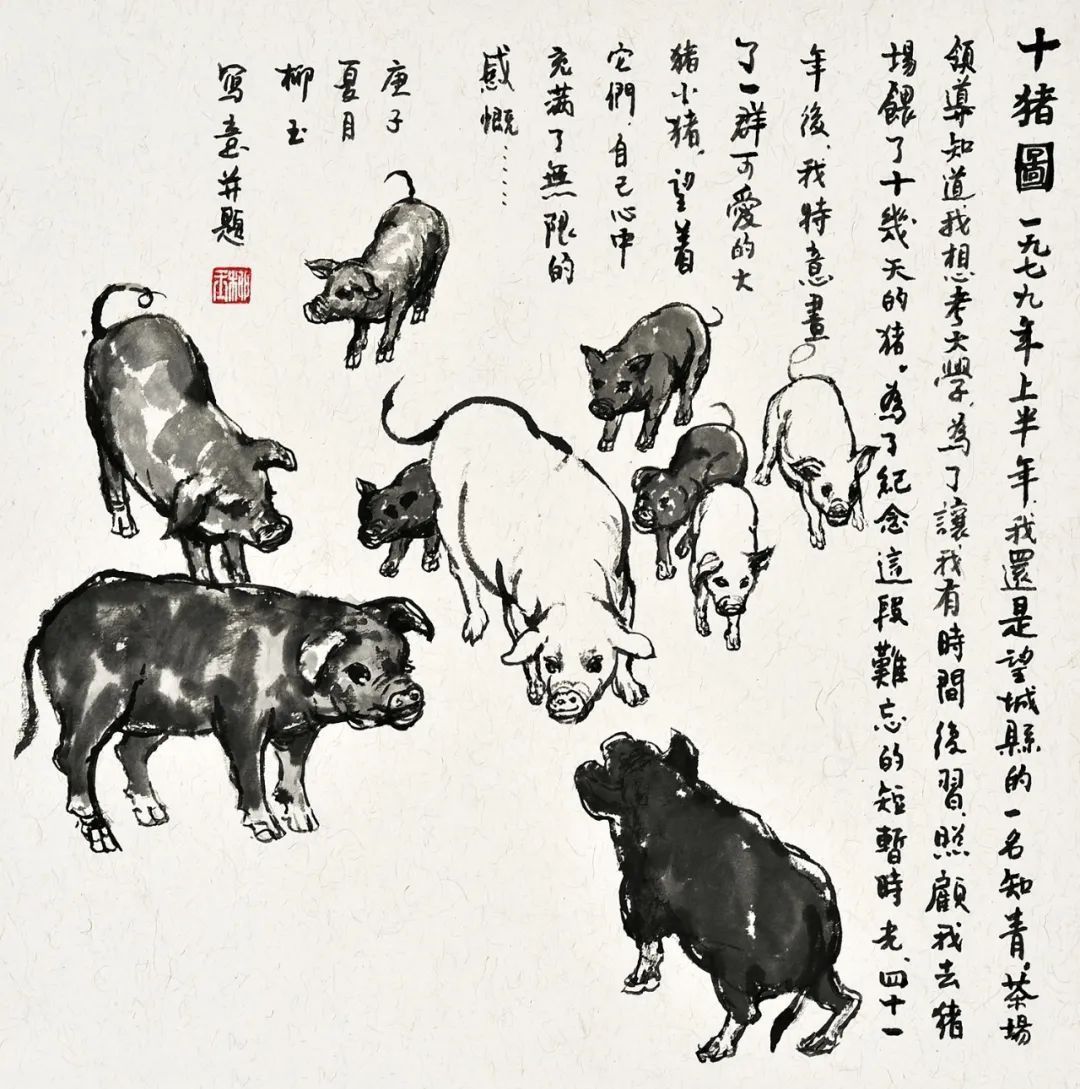 十猪圖 一九七九年上半年，我還是望城縣的一名知青。茶場
領導知道我想考大學，為了讓我有時間後習，照顧我去猪
場餵了十幾天的猪。為了紀念這段難忘的短暫時光、四十一
年後，我特意畫
了一群可愛的大
猪小猪，望着
它們，自己心中
充滿了無限的
感慨……
庚子
夏月
柳玉
寫意并題
柳玉